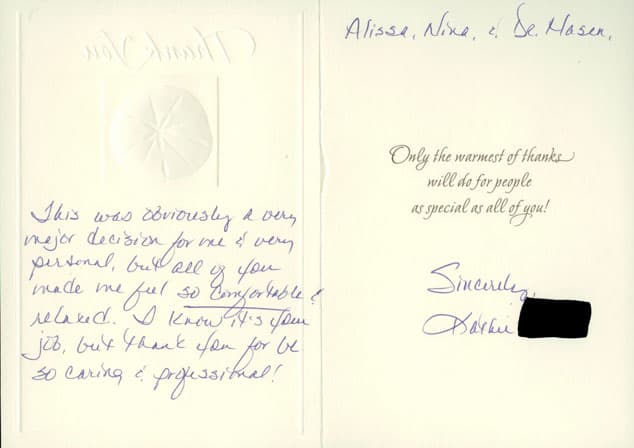 Thank You
This was obviously a very
major decision for me & very
personal, but all of you
made me feel so comfortable &
relaxed. I know it's your
job, but thank you for be
so caring & professional!
Alissa, Nina, & Dr. Mosen,
Only the warmest of thanks
will do for people
as special as all of you!
Sincerely,
Kathie